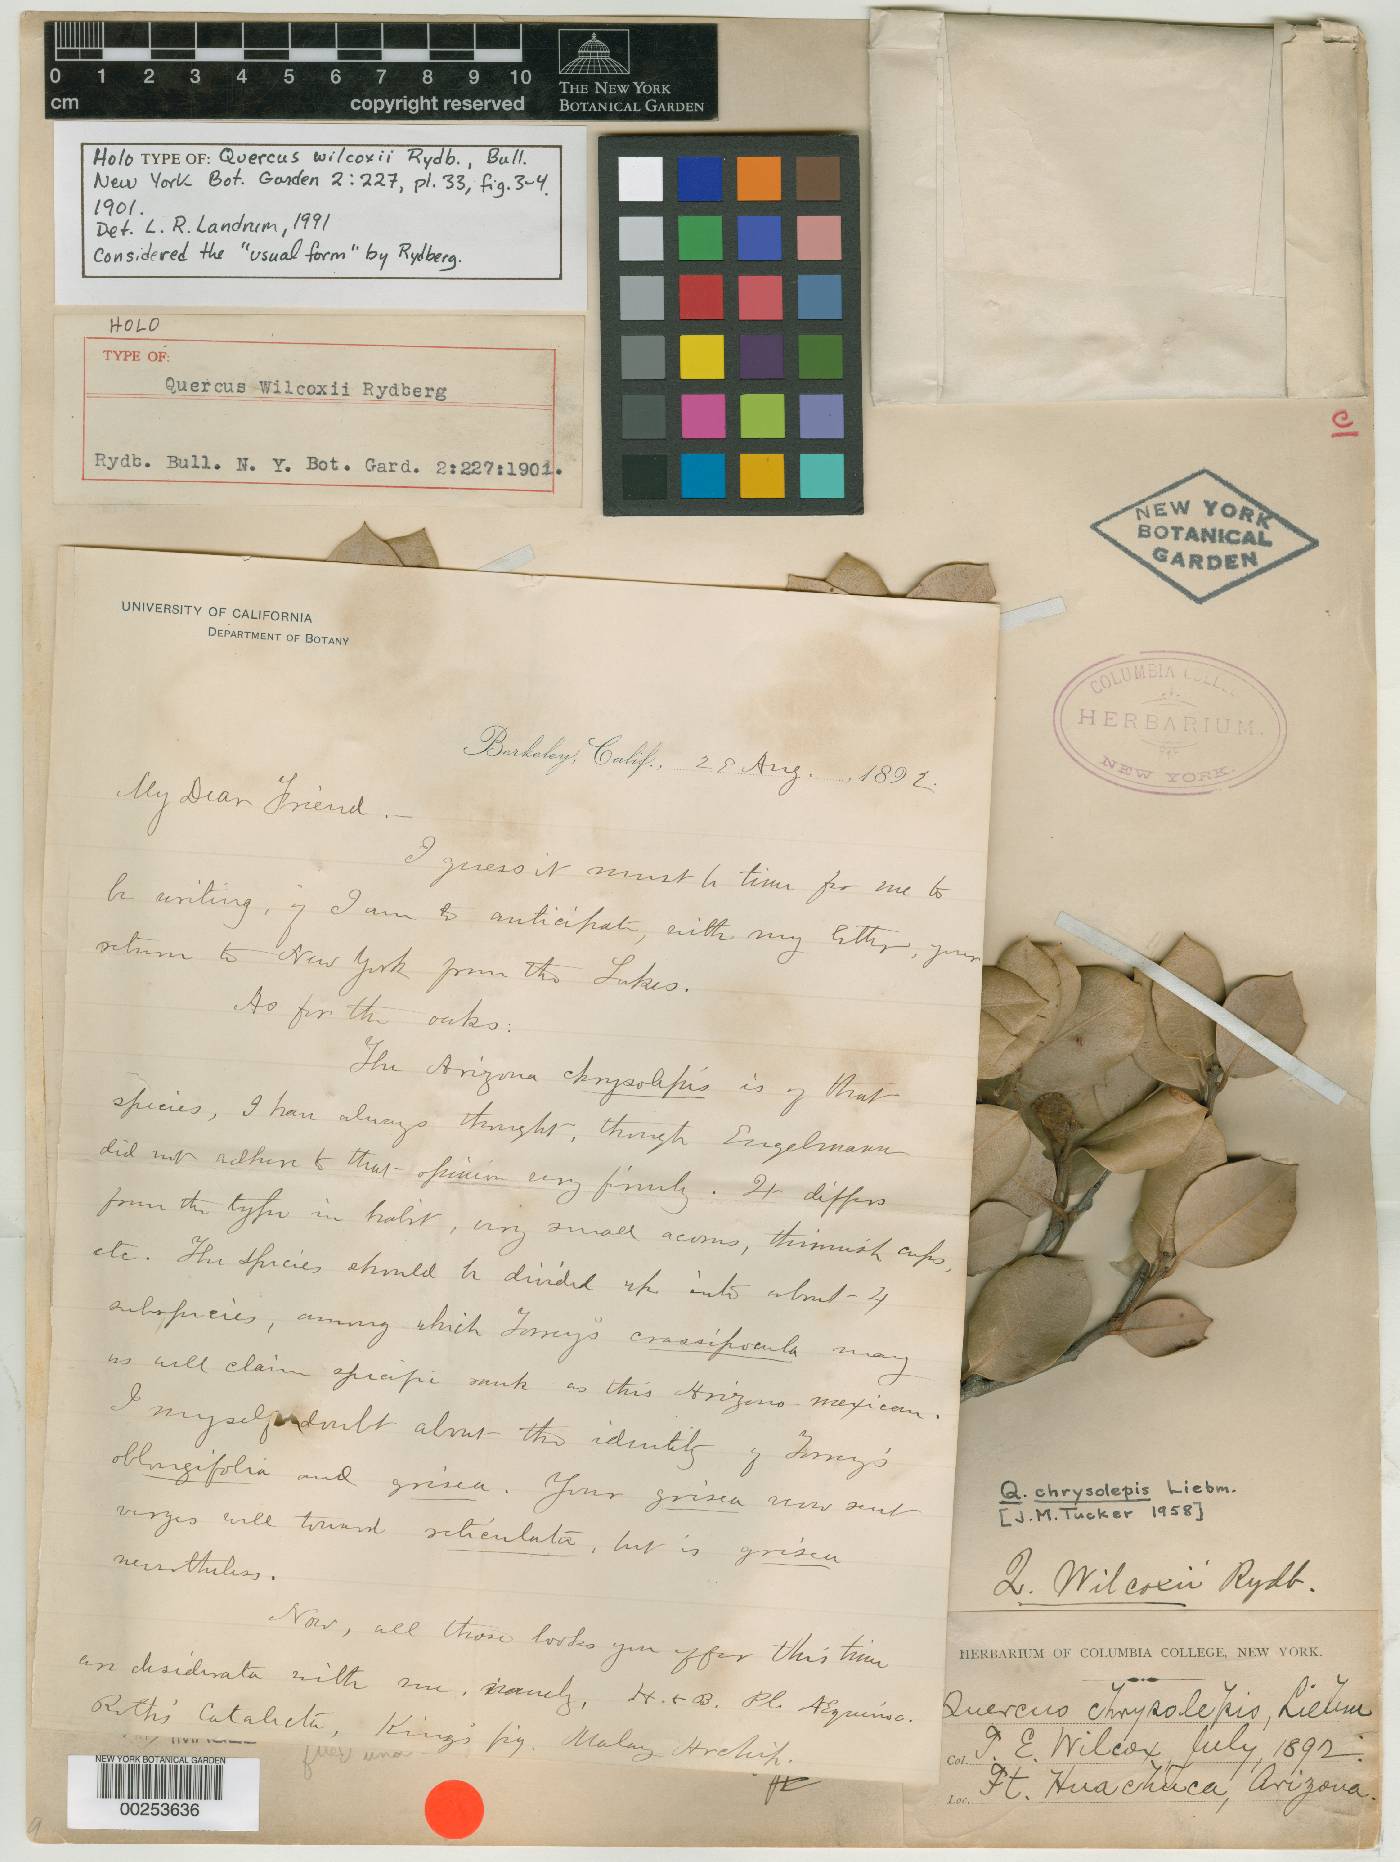 0 1 2 3 4 5 6 7 8 9 10
cm
copyright reserved
THE NEW YORK
BOTANICAL GARDEN
Holo TYPE OF: Quercus wilcoxii Rydb., Bull.
New York Bot. Garden 2:227, pl. 33, fig. 3-4.
1901.
Det. L. R. Landrum, 1991
Considered the "usual form" by Rydberg.
HOLO
TYPE OF:
Quercus Wilcoxii Rydberg
Rydb. Bull. N. Y. Bot. Gard. 2:227:1901.
C
NEW YORK
BOTANICAL
GARDEN
COLUMBIA COLLEGE
HERBARIUM.
NEW YORK.
UNIVERSITY OF CALIFORNIA
DEPARTMENT OF BOTANY
Berkeley, Calif., 28 Aug. 1892.
My Dear Friend.—
I guess it must be time for me to
be writing, if I am to anticipate, with my letter, your
return to New York from the Lakes.
As for the oaks:
The Arizona chrysolepis is of that
species, I have always thought, though Engelmann
did not adhere to that opinion very firmly. It differs
from the type in habit, very small acorns, thinnish cups,
etc. The species should be divided up into about 4
subspecies, among which Torrey's crassipocula may
as well claim specific rank as this Arizono-mexican.
I myself doubt about the identity of Torrey's
oblongifolia and grisea. Your grisea now sent
verges well toward reticulata, but is grisea
nevertheless.
Now, all those books you offer this time
are desiderata with me, namely, H. & B. Pl. AEquinoc.
Roth's Catalecta, King's fig. Malay Archip.
NEW YORK BOTANICAL GARDEN
00253636
Q. chrysolepis Liebm.
[J.M. Tucker 1958]
Q. Wilcoxii Rydb.
HERBARIUM OF COLUMBIA COLLEGE, NEW YORK.
Quercus chrysolepis, Liebm
Col. T. E. Wilcox, July, 1892.
Loc. Ft. Huachuca, Arizona.